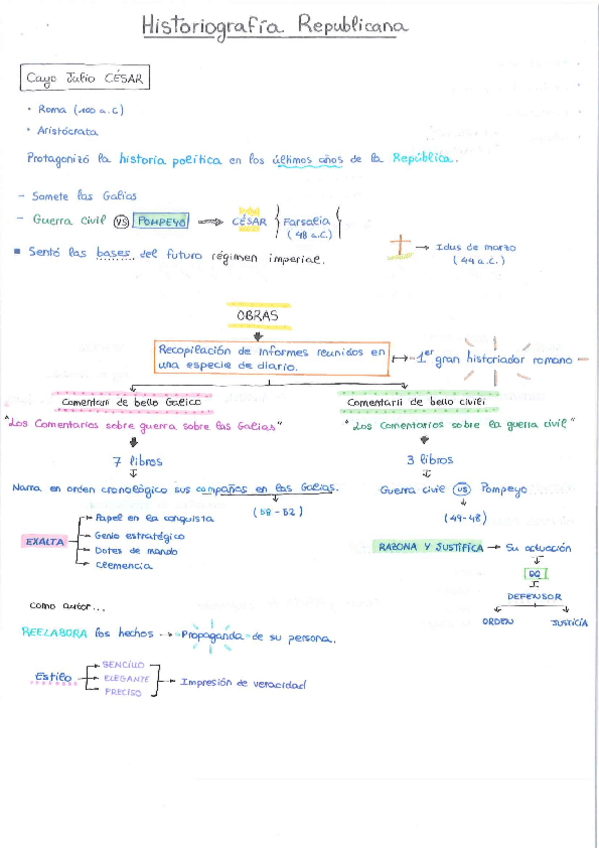 Historiografía Republicana
Cayo Julio CÉSAR
• Roma (100 a.C)
• Aristócrata
Protagonizó la historia política en los últimos años de la República.
- Somete las Galias
- Guerra civil VS POMPEYO → CÉSAR { Farsalia } (48 a.C.)
† → Idus de marzo (44 a.C.)
▪ Sentó las bases del futuro régimen imperial.
OBRAS
Recopilación de informes reunidos en una especie de diario. → 1er gran historiador romano
Comentarii de bello Galico
Comentarii de bello civili
"Los Comentarios sobre guerra sobre las Galias"
"Los Comentarios sobre la guerra civil"
7 libros
3 libros
Narra en orden cronológico sus campañas en las Galias.
(58-52)
Guerra civil VS Pompeyo
(49-48)
EXALTA
Papel en la conquista
Genio estratégico
Dotes de mando
Clemencia
RAZONA Y JUSTIFICA → Su actuación
DEFENSOR
ORDEN
JUSTICIA
como autor...
REELABORA los hechos → Propaganda de su persona.
Estilo
SENCILLO
ELEGANTE
PRECISO
→ Impresión de veracidad